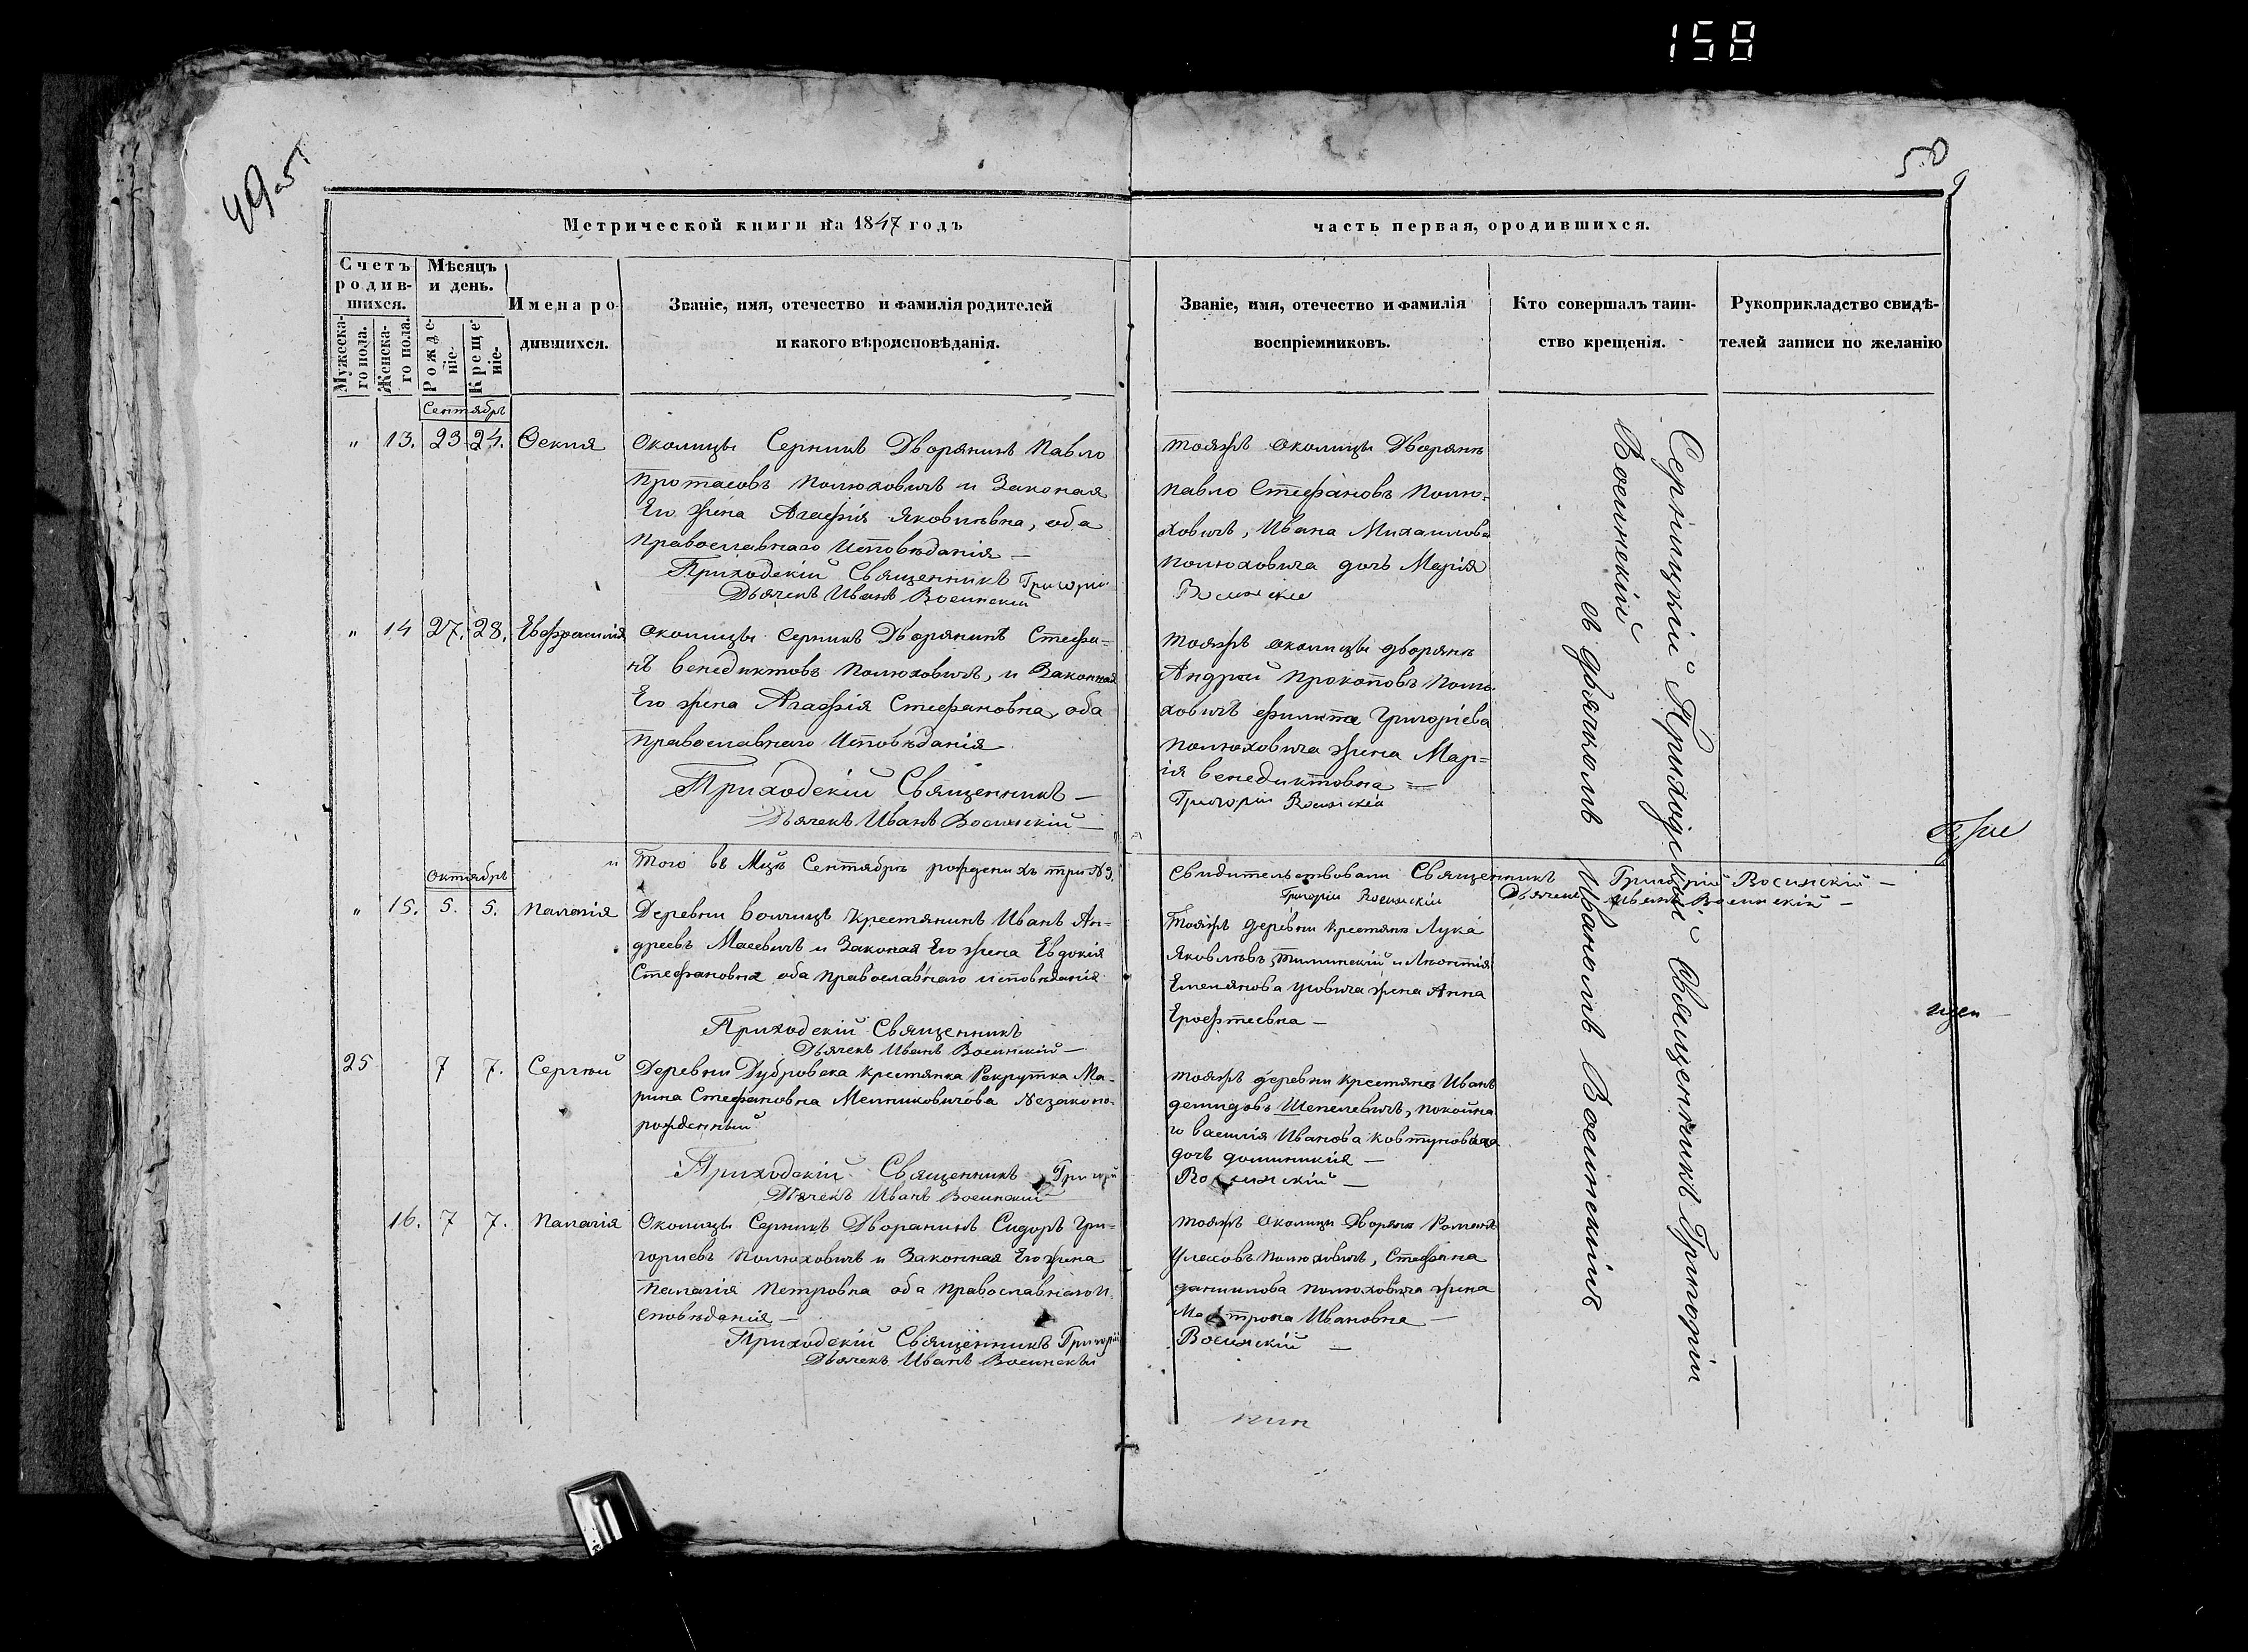 158
49 об.
50
Метрической книги на 1847 годъ
часть первая, ородившихся.
Счетъ родив-
шихся.
Мѣсяцъ
и день.
Имена ро-
дившихся.
Званіе, имя, отечество и фамилія родителей
и какого вѣроисповѣданія.
Мужеска-
го пола.
Женска-
го пола.
Рожде-
ніе.
Креще-
ніе.
Званіе, имя, отечество и фамилія
воспріемниковъ.
Кто совершалъ таин-
ство крещенія.
Рукоприкладство свидѣ-
телей записи по желанію
Сентябрь
" 13. 23 24. Ѳекла
Околицы Серникъ Дворянинъ Павло
Протасовъ Полюховичъ и Законая
Его жена Агафія Яковлѣвна, оба
Православнаго Исповѣданія —
Приходскій Священникъ Григорій
Дьячекъ Иванъ Восинскій
тояжъ околицы Дворянъ
Павло Стефановъ Полю-
ховичъ, Ивана Михаилова
Полюховича дочъ Марія
Восинскій
" 14 27. 28. Евфросинія
Околицы Серникъ Дворянинъ Стефа-
нъ Венедиктовъ Полюховичъ, и Законная
Его жена Агафія Стефановна, оба
Православнаго Исповѣданія
Приходскій Священникъ —
Дьячекъ Иванъ Восинскій —
тояжъ околицы дворянъ
Андрей Прокоповъ Полю-
ховичъ Григоріева
Полюховича жена Мар-
ія Венедиктовна
Григорій Восинскій
Того въ Мцѣ Сентябрѣ рожденихъ три № 3.
Свидительствовали Священникъ Григорій Восинскій —
Григорій Восинскій Дьячекъ Иванъ Восинскій —
Октябрь
" 15. 5. 5. Палагія
Деревни Воличъ Крестянинъ Иванъ Ан-
дреевъ Масевичъ и Законая Его жена Евдокія
Стефановна оба Православнаго исповѣданія
Приходскій Священникъ
Дьячекъ Иванъ Восинскій —
Тояжъ деревни крестянъ Лука
Яковлѣвъ и Лѣонтія
Емельянова жена Анна
25 7 7. Сергѣй
Деревни Дубровска крестянка Рекрутка Ма-
рина Стефановна Мелниковичова Незаконо-
рожденный
Приходскій Священникъ Григорій
Дьячекъ Иванъ Восинскій
тояжъ деревни крестянъ Иванъ
демидовъ Шепелевичъ, покойна
го василія Иванова Ковтуновича
дочъ доминикія —
Восинскій —
16. 7 7. Палагія
Околицы Серникъ Дворанинъ Сидоръ Гри-
гориевъ Полюховичъ и Законная Его жена
Пелагія Петровна оба Православнаго И
сповѣданія —
Приходскій Священникъ Григорій
Дьячекъ Иванъ Восинскій
тояжъ Околицы Дворянъ Романъ
Полюховичъ, Стефана
данилова Полюховича жена
Мотрона Ивановна —
Восинскій —
Серницкій Приходскій Священникъ Григорій
Восинскій
съ дьячкомъ Иваномъ Восинскимъ